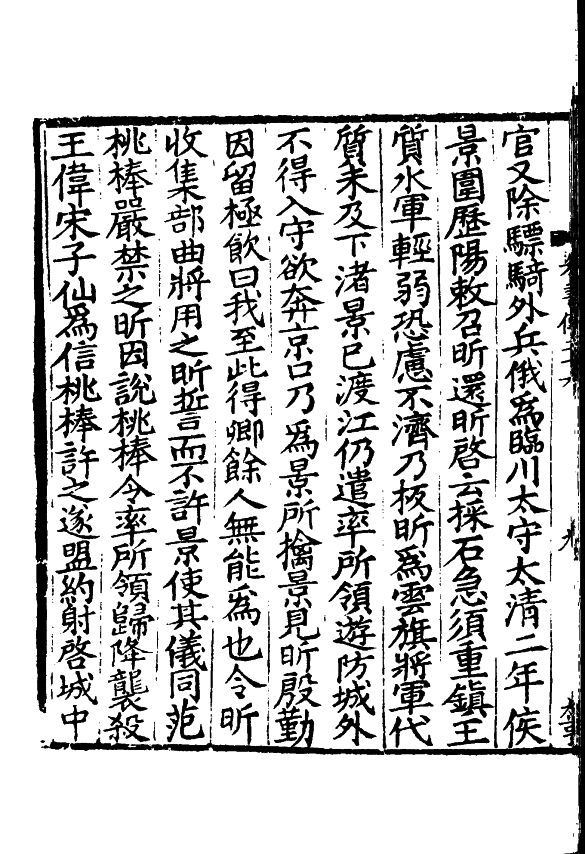 官又除驃騎外兵俄爲臨川太守太清二年侯
景圍歷陽敕召昕還昕啓云採石急須重鎮王
質水軍輕弱恐慮不濟乃板昕爲雲旗將軍代
質未及下渚景已渡江仍遣率所領遊防城外
不得入守欲奔京口乃爲景所擒景見昕殷勤
因留極飲曰我至此得卿餘人無能爲也令昕
收集部曲將用之昕誓而不許景使其儀同范
桃棒嚴禁之昕因說桃棒令率所領歸降襲殺
王偉宋子仙爲信桃棒許之遂盟約射啓城中